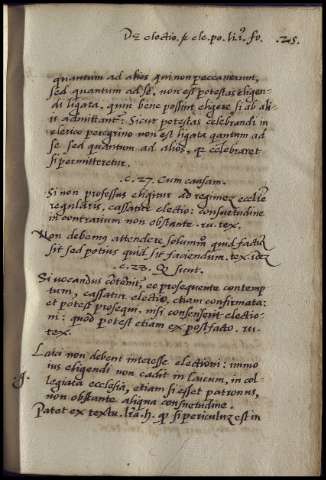 De electio. & ele. po. li. i. fo. 25.
quantum ad alios qui non peccaverunt,
sed quantum ad se, non est potestas eligen-
di ligata, quin bene possint eligere si ab ali-
is admittant: Sicut potestas celebrandi in
clerico peregrino non est ligata quantum ad
se sed quantum ad alios, qui celebraret
si permitteretur.
.c. 27. Cum causam.
Si non professus eligitur ad regimen eccliæ
regularis, cassatur electio: consuetudine
in contrarium non obstante. tex.
Non debemus attendere solummo quid factum
sit sed potius quid sit faciendum. tex.
.c. 28. Q sicut.
Si vocandus contemnit, eo prosequente contemp
tum, cassatur electio, etiam confirmata:
et potest prosequi, nisi consenserit electio-
ni: quod potest etiam ex post facto.
tex.
Laici non debent interesse electioni: immo
ius eligendi non cadit in laicum, in col-
legiata ecclesia, etiam si esset patronus,
non obstante aliqua consuetudine.
Patet ex textu. h. q si periculum est in